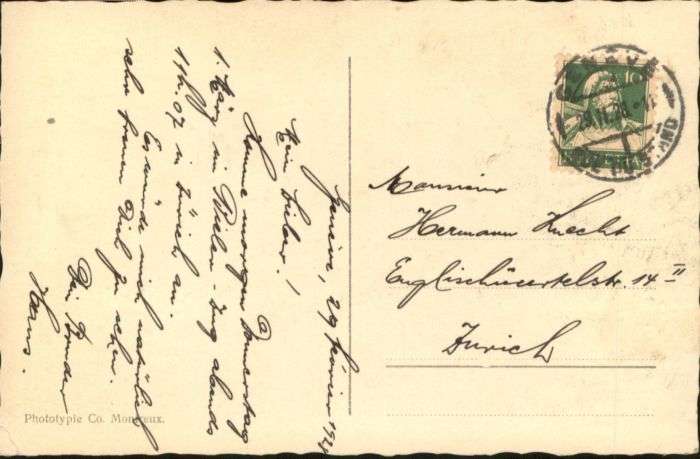 Genève, 29 février 192
Mein Lieber!
Komme morgen Donnerstag
1. März im Wielen-Zug abends
11h.07 in Zürich an.
Es würde mich natürlich
sehr freuen Dich zu sehen.
Dein Bruder
Hans.
Monsieur
Hermann Knecht
Englischviertelstr. 14 II
Zürich
10
Phototypie Co. Montreux.